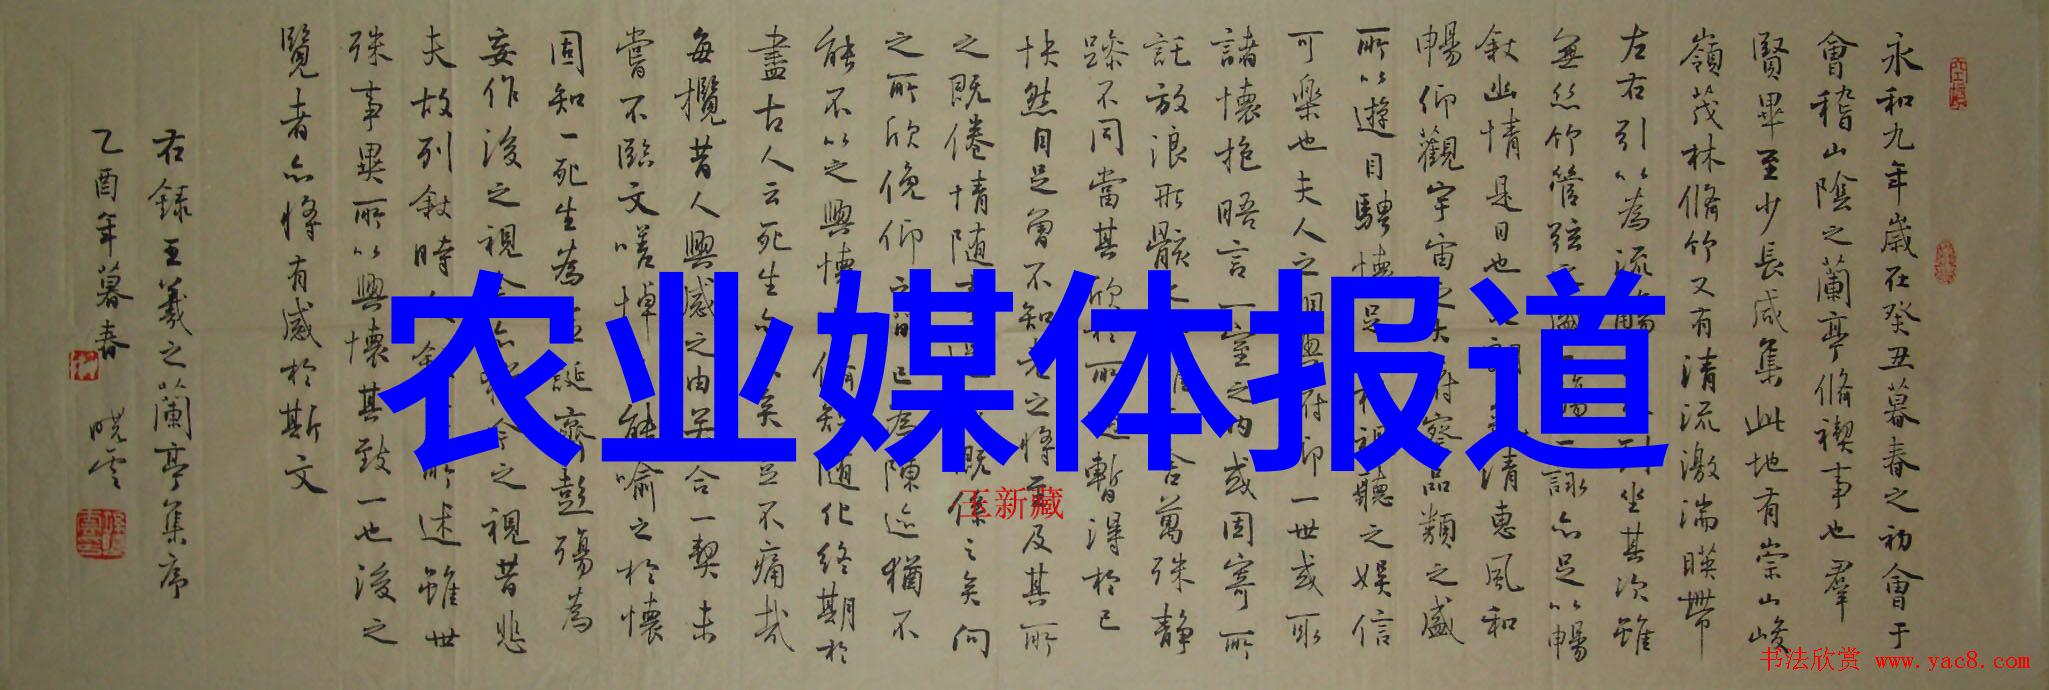 永和九年歲在癸丑暮春之初會于
會稽山陰之蘭亭脩禊事也羣
賢畢至少長咸集此地有崇山峻
嶺茂林脩竹又有清流激湍暎帶
左右引以為流觴坐其次雖
無絲竹管弦一詠亦足以暢
敘幽情是日也清惠風和
暢仰觀宇宙之大府察品類之盛
所以遊目騁懷足視聽之娛信
可樂也夫人之相與俯仰一世或取
諸懷抱晤言一室之內或因寄所
託放浪形骸之萬殊静
躁不同當其欣於所暫得於己
快然自足曾不知老之將至及其所
之既倦情随係之矣向
之所欣俛仰之間已為陳迹猶不
能不以之興懷脩短随化終期於
盡古人云死生亦大矣豈不痛哉
每攬昔人興感之由若合一契未
嘗不臨文嗟悼能喻之於懷
固知一死生為虛誕齊彭殤為
妄作後之視今亦今之視昔悲
夫故列敘時人所述雖世
殊事異所以興懷其致一也後之
覽者亦將有感於斯文
右錄王羲之蘭亭集序
乙酉年暮春 曉雲
农业媒体报道
王新藏
书法欣赏 www.yac8.com